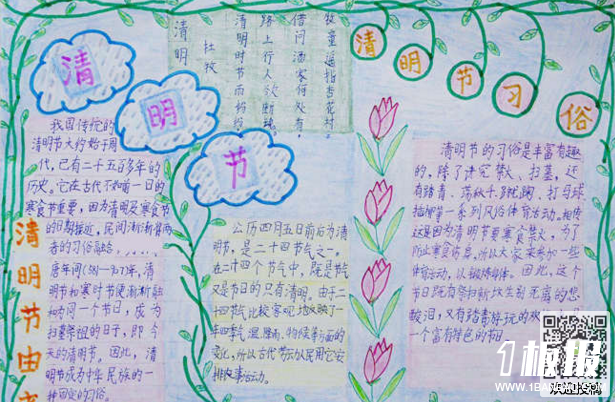 清
明
节
清明
杜牧
清明时节雨纷纷，
路上行人欲断魂。
借问酒家何处有，
牧童遥指杏花村。
清明节习俗
清明节由
我国传统的
清明节大约始于周
代，已有二千五百多年的
历史。它在古代不如前一日的
寒食节重要，因为清明及寒食节
的日期接近，民间渐渐将两
者的习俗融合，
唐年间（581-907年），清
明节和寒时节便渐渐融
和为同一个节日，成为
扫墓祭祖的日子，即今
天的清明节。因此，清
明节成为中华民族的一
种固定的习俗。
公历四月五日前后为清
明节，是二十四节气之一。
在二十四个节气中，既是节气
又是节日的只有清明。由于二
十四节气比较客观地反映了一
年四季气温、降雨、物候等方面的
变化，所以古代劳动人民用它安
排农事活动。
清明节的习俗是丰富有趣
的，除了讲究禁火、扫墓，还
有踏青、荡秋千、蹴鞠、打马球、
插柳等一系列风俗体育活动。相传
这是因为清明节要寒食禁火，为了
防止寒食伤身，所以大家来参加一些
体育活动，以锻炼身体。因此，这个
节日既有祭扫新坟生别死离的悲
酸泪，又有踏青好玩的欢
一个富有特色的节日
1板报
WWW.1BANBAO.COM
欢迎投稿